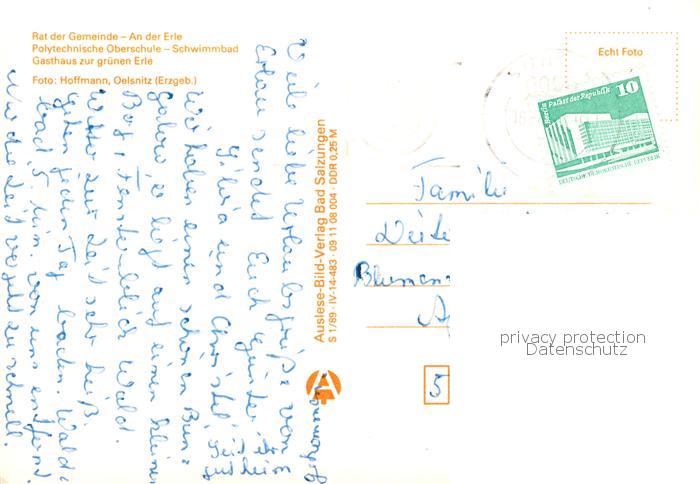 Rat der Gemeinde – An der Erle
Polytechnische Oberschule – Schwimmbad
Gasthaus zur grünen Erle
Foto: Hoffmann, Oelsnitz (Erzgeb.)
Echt Foto
Berlin Palast der Republik 10
DEUTSCHE DEMOKRATISCHE REPUBLIK
Auslese-Bild-Verlag Bad Salzungen
S 1/89 · IV-14-483 · 09 11 08 004 · DDR 0,25 M
Viele liebe Urlaubsgrüße vom
sendet Euch
und Christel
Wir haben einen schönen Bun-
galow, er liegt auf einem kleinen
Berg, Fensterblick Wald.
Wetter zur Zeit sehr heiß,
gehen jeden Tag baden. Wald-
bad 5 Min. von uns entfernt.
Nur die Zeit vergeht zu schnell.
Familie
Blumen-
5
privacy protection
Datenschutz